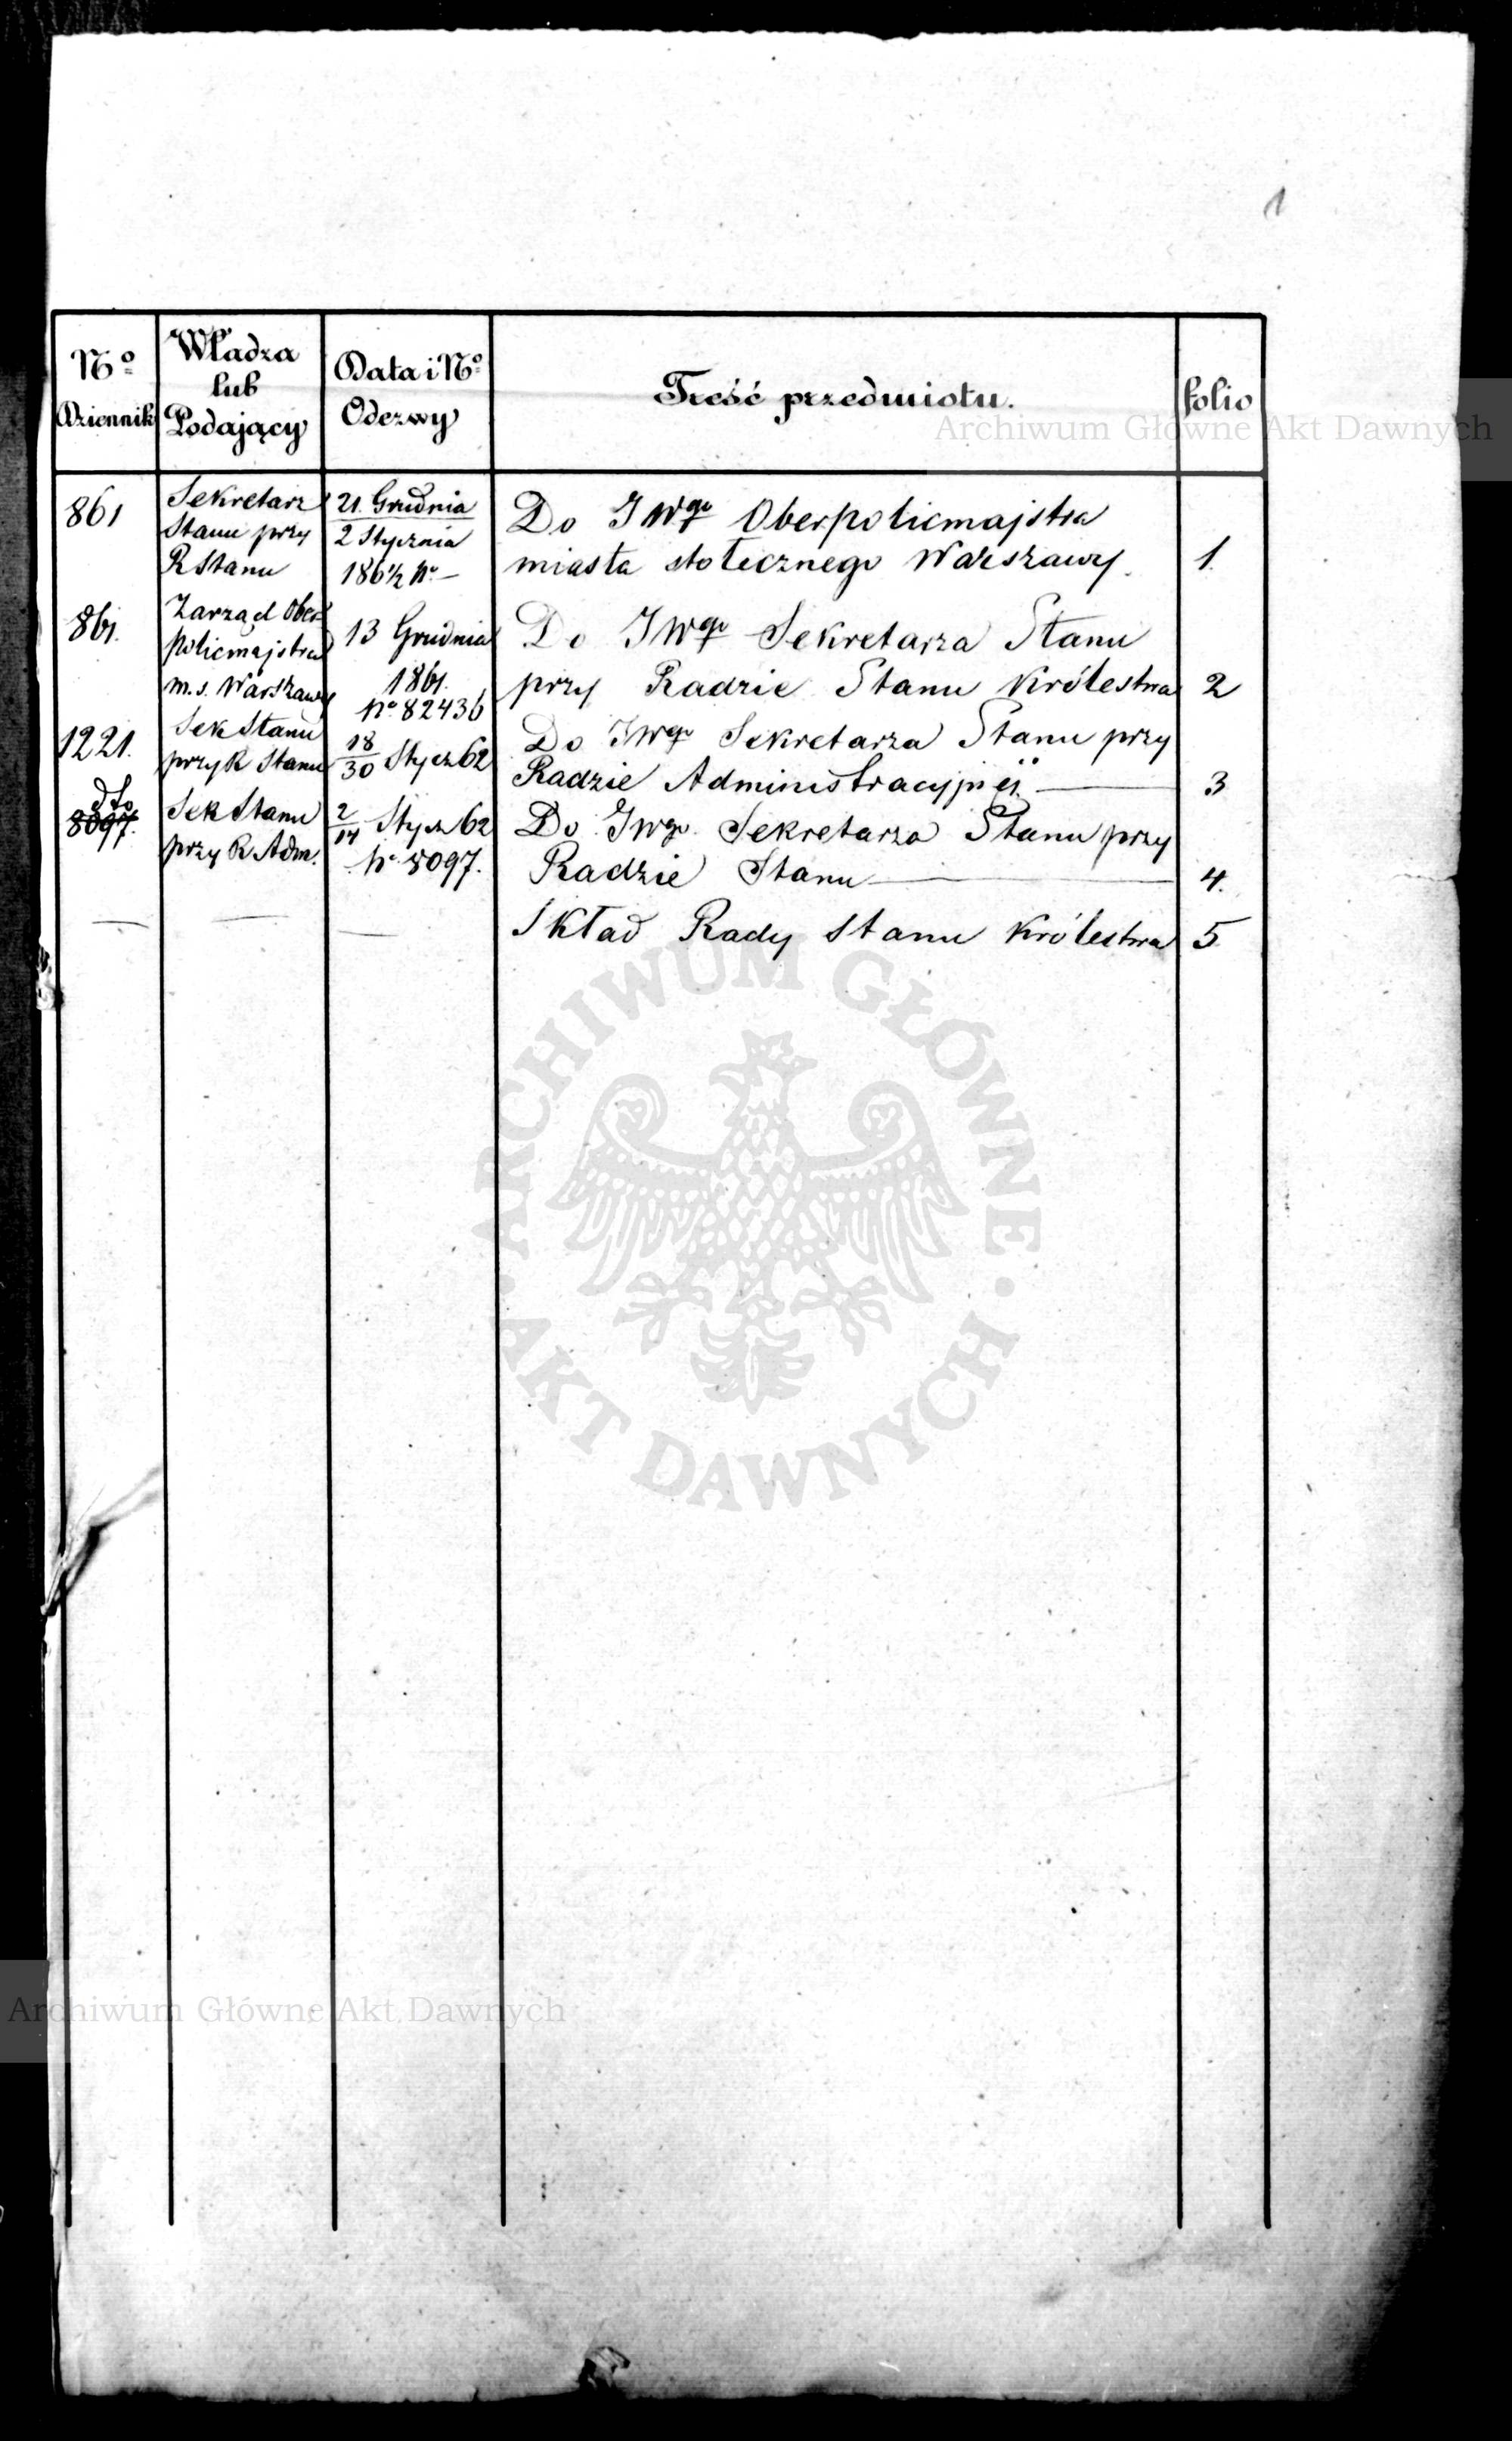 1
Nº Dziennik
Władza lub Podający
Data i Nº Odezwy
Treść przedmiotu.
folio
861
Sekretarz
Stanu przy
R Stanu
21. Grudnia
2 Stycznia
186½ Nº —
Do JWgo Oberpolicmajstra
miasta stołecznego Warszawy.
1.
861.
Zarząd Ober
policmajstra
m. s. Warszawy
13 Grudnia
1861.
Nº 82436
Do JWgo Sekretarza Stanu
przy Radzie Stanu Królestwa
2
1221.
Sek Stanu
przy R Stanu
18/30 Stycz 62
Do JWgo Sekretarza Stanu przy
Radzie Administracyjnéj
3
dto
8097.
Sek Stanu
przy R Adm.
2/14 Stycz 62
Nº 8097.
Do JWgo Sekretarza Stanu przy
Radzie Stanu
4.
Skład Rady Stanu Królestwa
5.
Archiwum Główne Akt Dawnych
ARCHIWUM GŁÓWNE · AKT DAWNYCH ·
Archiwum Główne Akt Dawnych